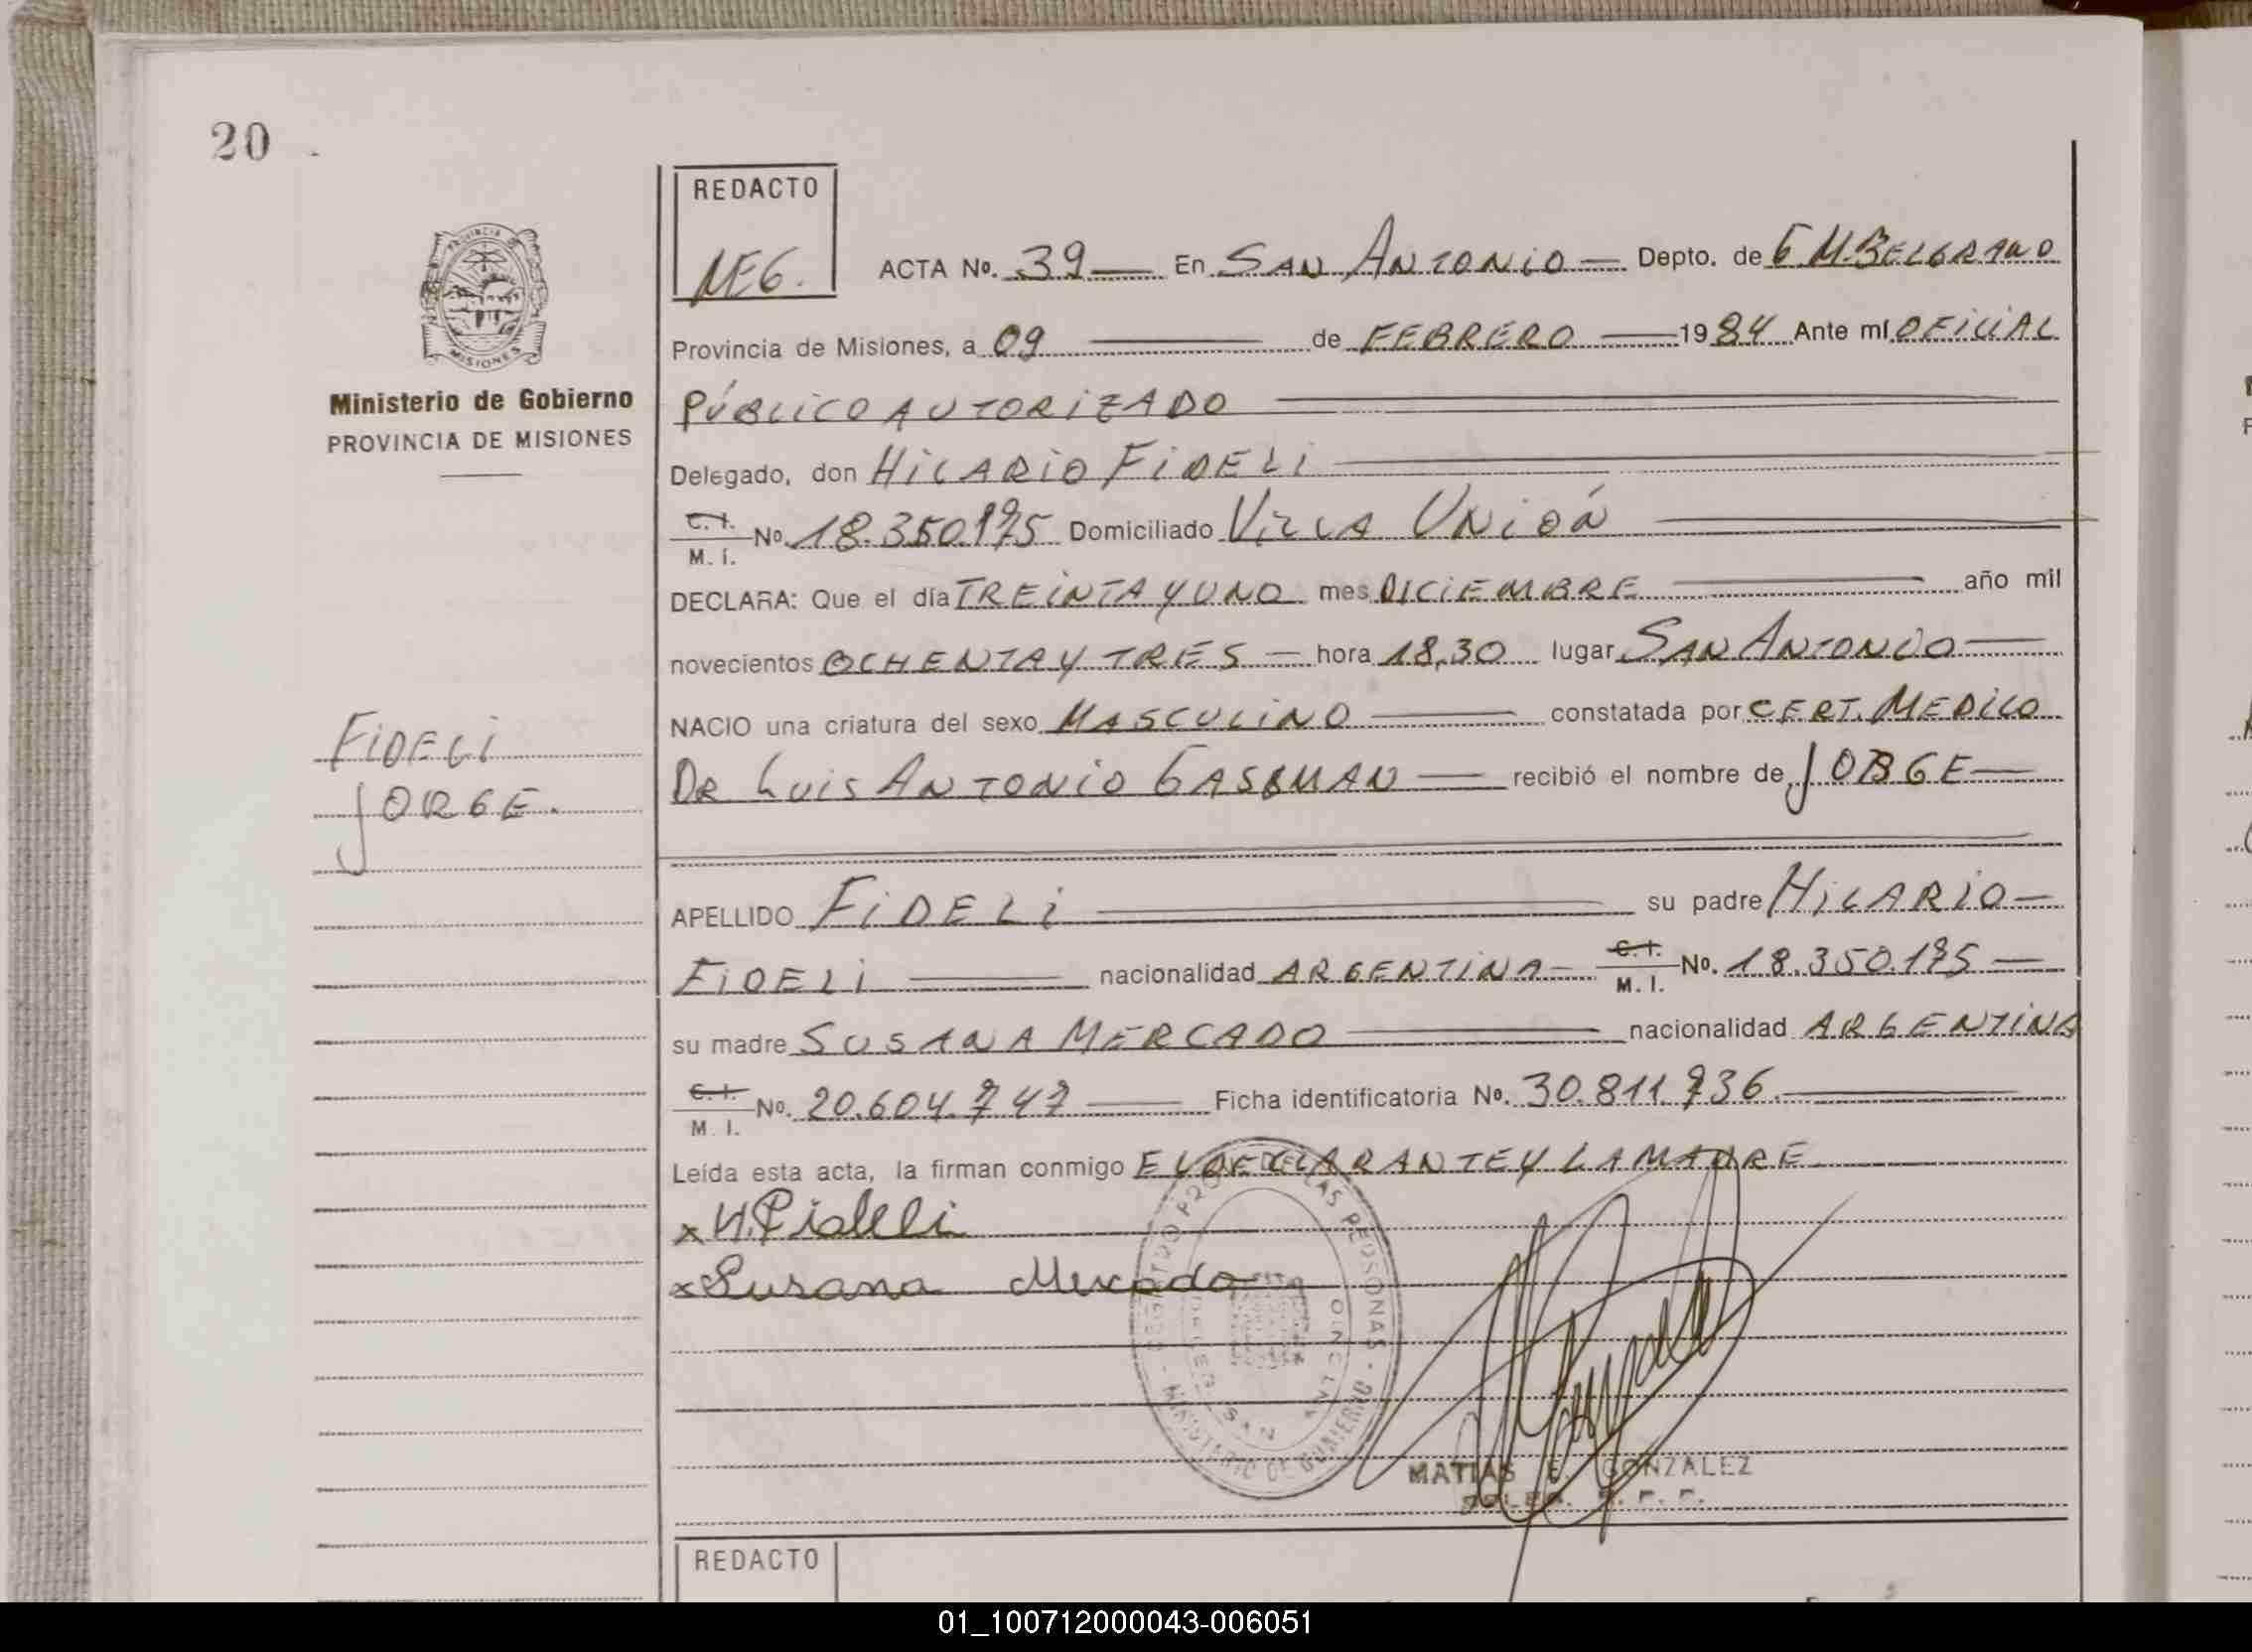 20
REDACTO
NEG.
ACTA No. 39 En SAN ANTONIO Depto. de G M. BELGRANO
Provincia de Misiones, a 09 de FEBRERO 1984 Ante mí OFICIAL
PÚBLICO AUTORIZADO
Delegado, don HILARIO FIDELI
C. I.
M. I. No. 18.350.175 Domiciliado VILLA UNIÓN
DECLARA: Que el día TREINTA Y UNO mes DICIEMBRE año mil
novecientos OCHENTA Y TRES hora 18,30 lugar SAN ANTONIO
NACIO una criatura del sexo MASCULINO constatada por CERT. MEDICO
DR LUIS ANTONIO GASSMAN recibió el nombre de JORGE
APELLIDO FIDELI su padre HILARIO
FIDELI nacionalidad ARGENTINA C. I.
M. I. No. 18.350.175
su madre SUSANA MERCADO nacionalidad ARGENTINA
C. I.
M. I. No. 20.604.747 Ficha identificatoria No. 30.811.736
Leída esta acta, la firman conmigo EL DECLARANTE Y LA MADRE
x H. Fideli
x Susana Mercado
PROVINCIA DE
MISIONES
Ministerio de Gobierno
PROVINCIA DE MISIONES
FIDELI
JORGE.
REGISTRO PROV. DE LAS PERSONAS
MINISTERIO DE GOBIERNO
SAN ANTONIO
MATIAS E. GONZALEZ
REDACTO
01_100712000043-006051